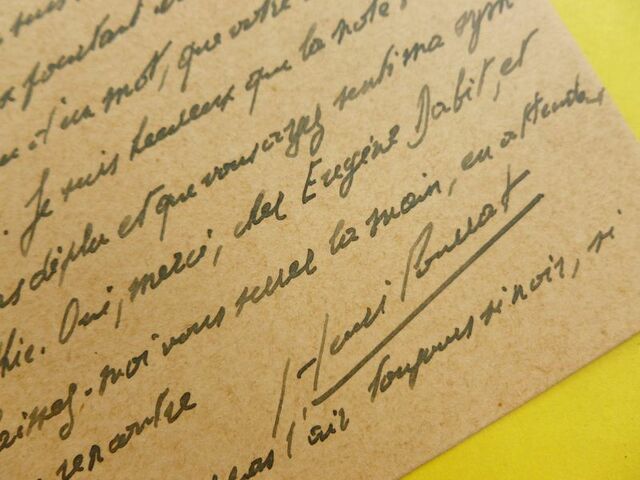 suis
x pourtant
d'un mot, que votre
Je suis heureux que la note,
déplu et que vous ayez senti ma sym
thie. Oui, merci, cher Eugène Dabit, et
laissez-moi vous serrer la main, en attendant
rencontre
Henri Pourrat
pas l'air toujours si noir, si